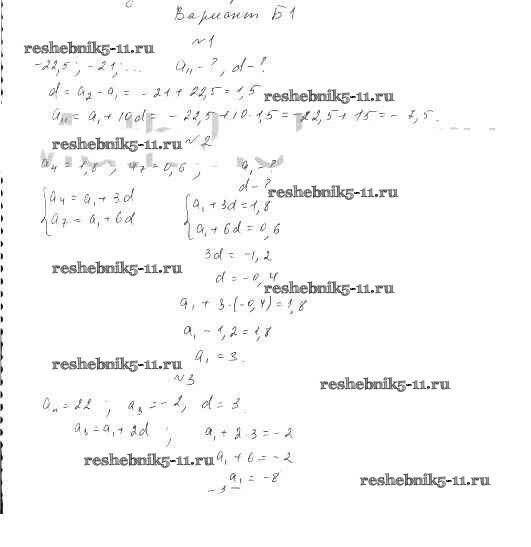 Вариант Б1
№1
reshebnik5-11.ru
-22,5; -21; ... a₁₁-?, d-?
d = a₂ - a₁ = -21 + 22,5 = 1,5
reshebnik5-11.ru
a₁₁ = a₁ + 10d = -22,5 + 10·1,5 = -22,5 + 15 = -7,5.
reshebnik5-11.ru №2
a₄ = 1,8, a₇ = 0,6; a₁-?
d-?
reshebnik5-11.ru
a₄ = a₁ + 3d a₁ + 3d = 1,8
a₇ = a₁ + 6d a₁ + 6d = 0,6
3d = -1,2
reshebnik5-11.ru
d = -0,4
reshebnik5-11.ru
a₁ + 3·(-0,4) = 1,8
a₁ - 1,2 = 1,8
reshebnik5-11.ru a₁ = 3.
№3
reshebnik5-11.ru
aₙ = 22; a₃ = -2, d = 3.
a₃ = a₁ + 2d; a₁ + 2·3 = -2
reshebnik5-11.ru a₁ + 6 = -2
a₁ = -8
reshebnik5-11.ru
-3-